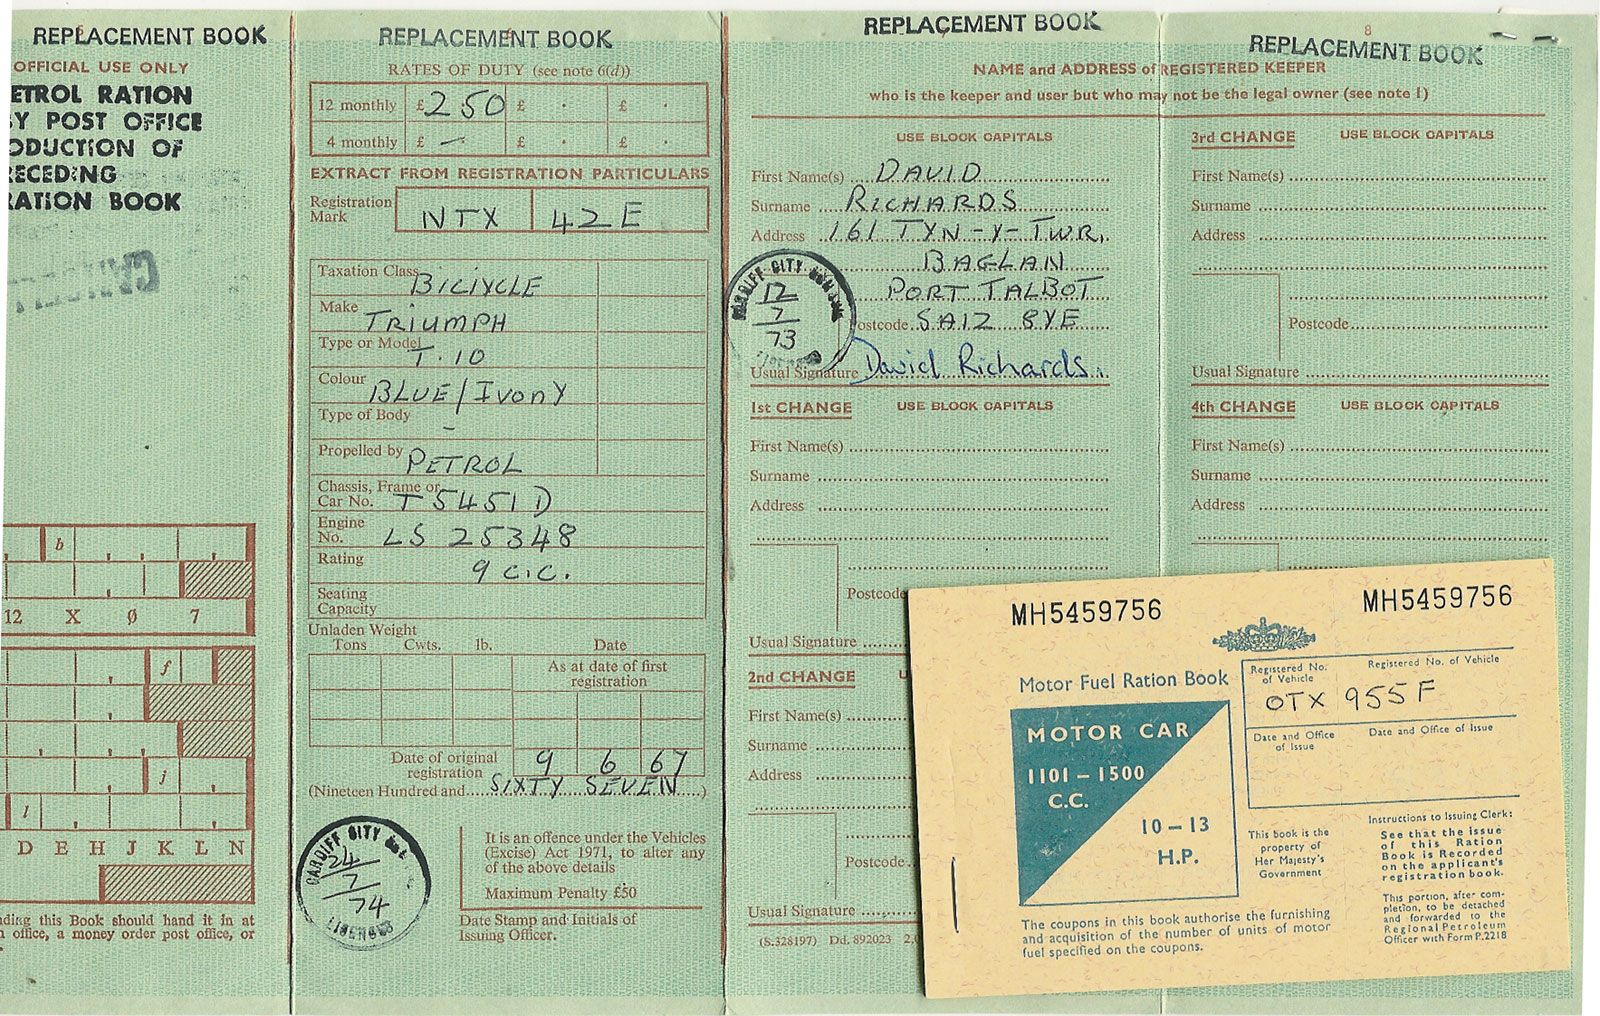 REPLACEMENT BOOK
OFFICIAL USE ONLY
ETROL RATION
Y POST OFFICE
ODUCTION OF
ECEDING
RATION BOOK
b
12 X Ø 7
f
j
l
D E H J K L N
ding this Book should hand it in at
office, a money order post office, or
REPLACEMENT BOOK
RATES OF DUTY (see note 6(d))
12 monthly £ 2.50 £ . £ .
4 monthly £ — £ . £ .
EXTRACT FROM REGISTRATION PARTICULARS
Registration
Mark NTX 42E
Taxation Class BICIYCLE
Make TRIUMPH
Type or Model T.10
Colour BLUE/IVORY
Type of Body -
Propelled by PETROL
Chassis, Frame or
Car No. T5451D
Engine
No. LS 25348
Rating 9 c.c.
Seating
Capacity
Unladen Weight
Tons Cwts. lb. Date
As at date of first
registration
Date of original
registration 9 6 67
(Nineteen Hundred and SIXTY SEVEN )
CARDIFF CITY
24
7
74
LICENCES
It is an offence under the Vehicles
(Excise) Act 1971, to alter any
of the above details
Maximum Penalty £50
Date Stamp and Initials of
Issuing Officer.
REPLACEMENT BOOK
8
REPLACEMENT BOOK
NAME and ADDRESS of REGISTERED KEEPER
who is the keeper and user but who may not be the legal owner (see note 1)
USE BLOCK CAPITALS
First Name(s) DAVID
Surname RICHARDS
Address 161 TYN-Y-TWR,
BAGLAN
PORT TALBOT
ostcode SA12 8YE
Usual Signature David Richards.
CARDIFF CITY
12
7
73
1st CHANGE USE BLOCK CAPITALS
First Name(s)
Surname
Address
Postcode
Usual Signature
2nd CHANGE U
First Name(s)
Surname
Address
Postcode
Usual Signature
(S.328197) Dd. 892023
3rd CHANGE USE BLOCK CAPITALS
First Name(s)
Surname
Address
Postcode
Usual Signature
4th CHANGE USE BLOCK CAPITALS
First Name(s)
Surname
Address
MH5459756 MH5459756
Motor Fuel Ration Book
MOTOR CAR
1101 – 1500
C.C.
10 – 13
H.P.
Registered No.
of Vehicle
Registered No. of Vehicle
OTX 955F
Date and Office
of Issue
Date and Office of Issue
This book is the
property of
Her Majesty's
Government
Instructions to Issuing Clerk:
See that the issue
of this Ration
Book is Recorded
on the applicant's
registration book.
This portion, after com-
pletion, to be detached
and forwarded to the
Regional Petroleum
Officer with Form P.2218
The coupons in this book authorise the furnishing
and acquisition of the number of units of motor
fuel specified on the coupons.